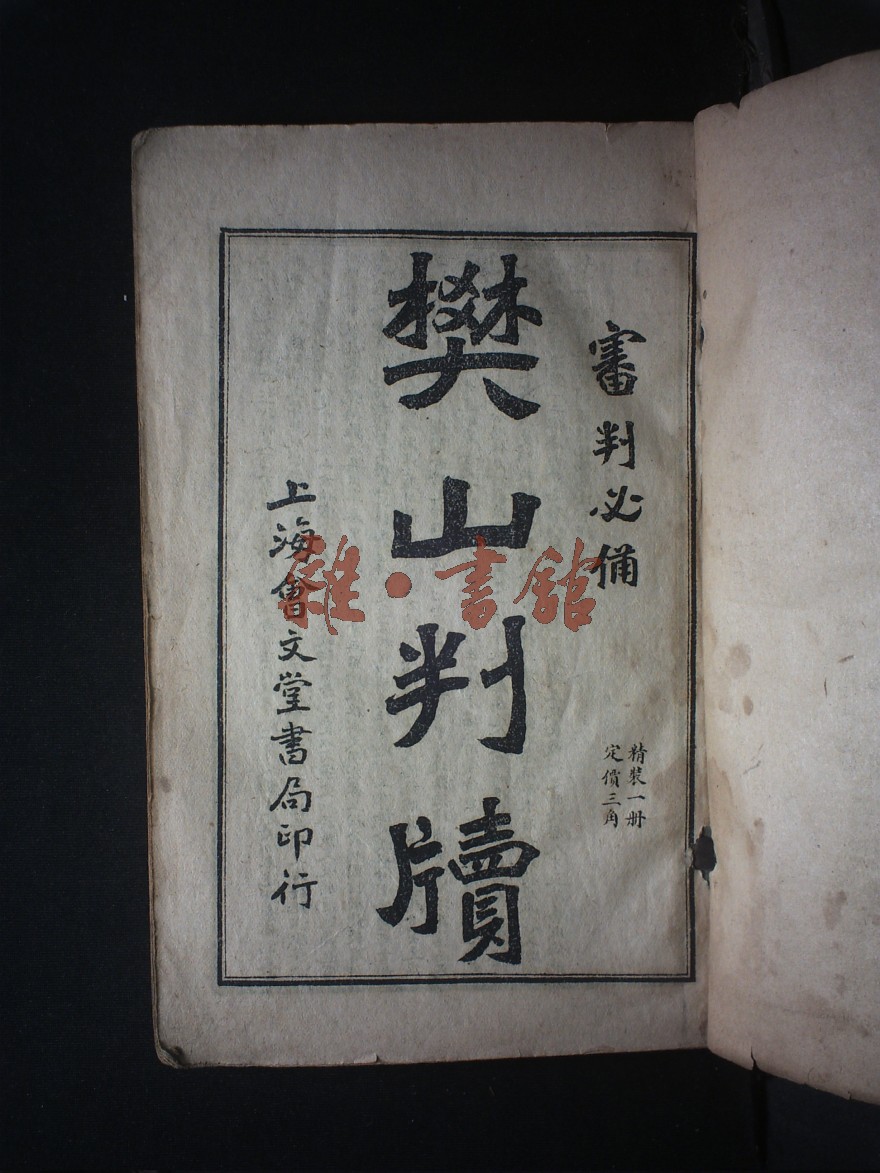 審判必備
精裝一册
定價三角
樊山判牘
上海會文堂書局印行
雜·書館